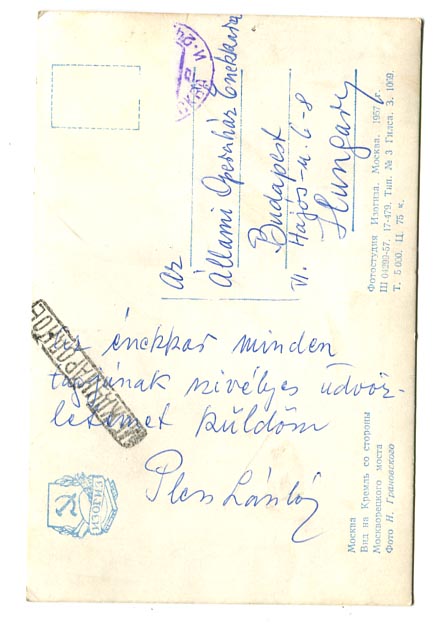 Az énekkar minden
tagjának szivélyes üdvöz-
letemet küldöm
Pless László
Az
Állami Operaház Énekkara
Budapest
VI. Hajós-u. 6-8
Hungary
МЕЖДУНАРОДНОЕ
ИЗОГИЗ
Москва
Вид на Кремль со стороны
Москворецкого моста
Фото Н. Грановского
Фотостудия Изогиза, Москва, 1957 г.
Ш 04299-57. 17-479. Тип. № 3 Гилса. З. 1009.
Т. 5 000. Ц. 75 к.